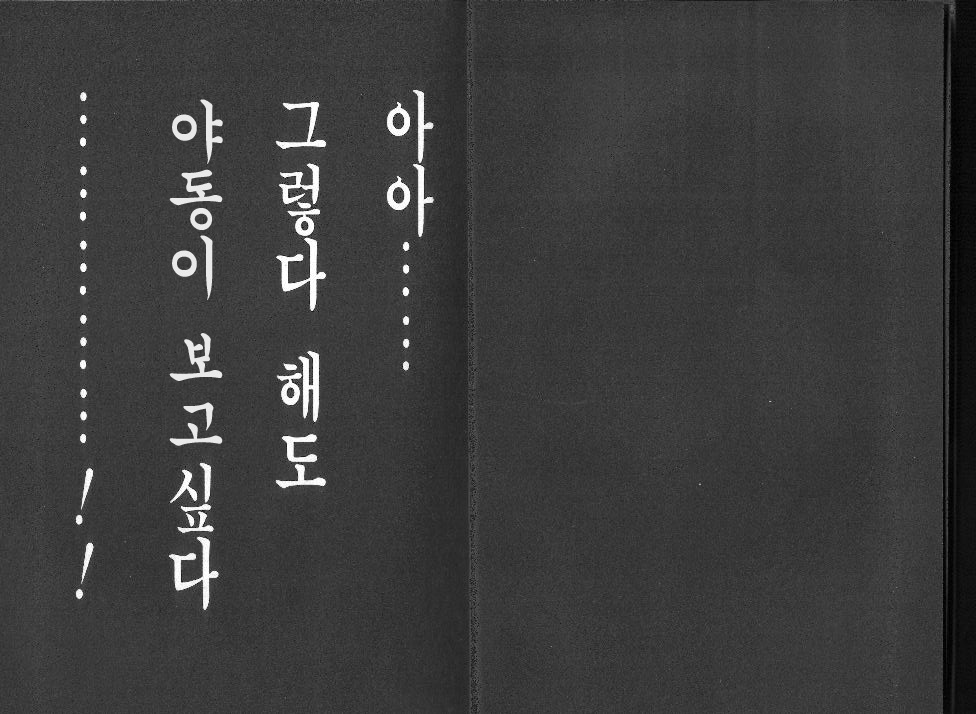 아아……
그렇다 해도
야동이 보고싶다
……………!!